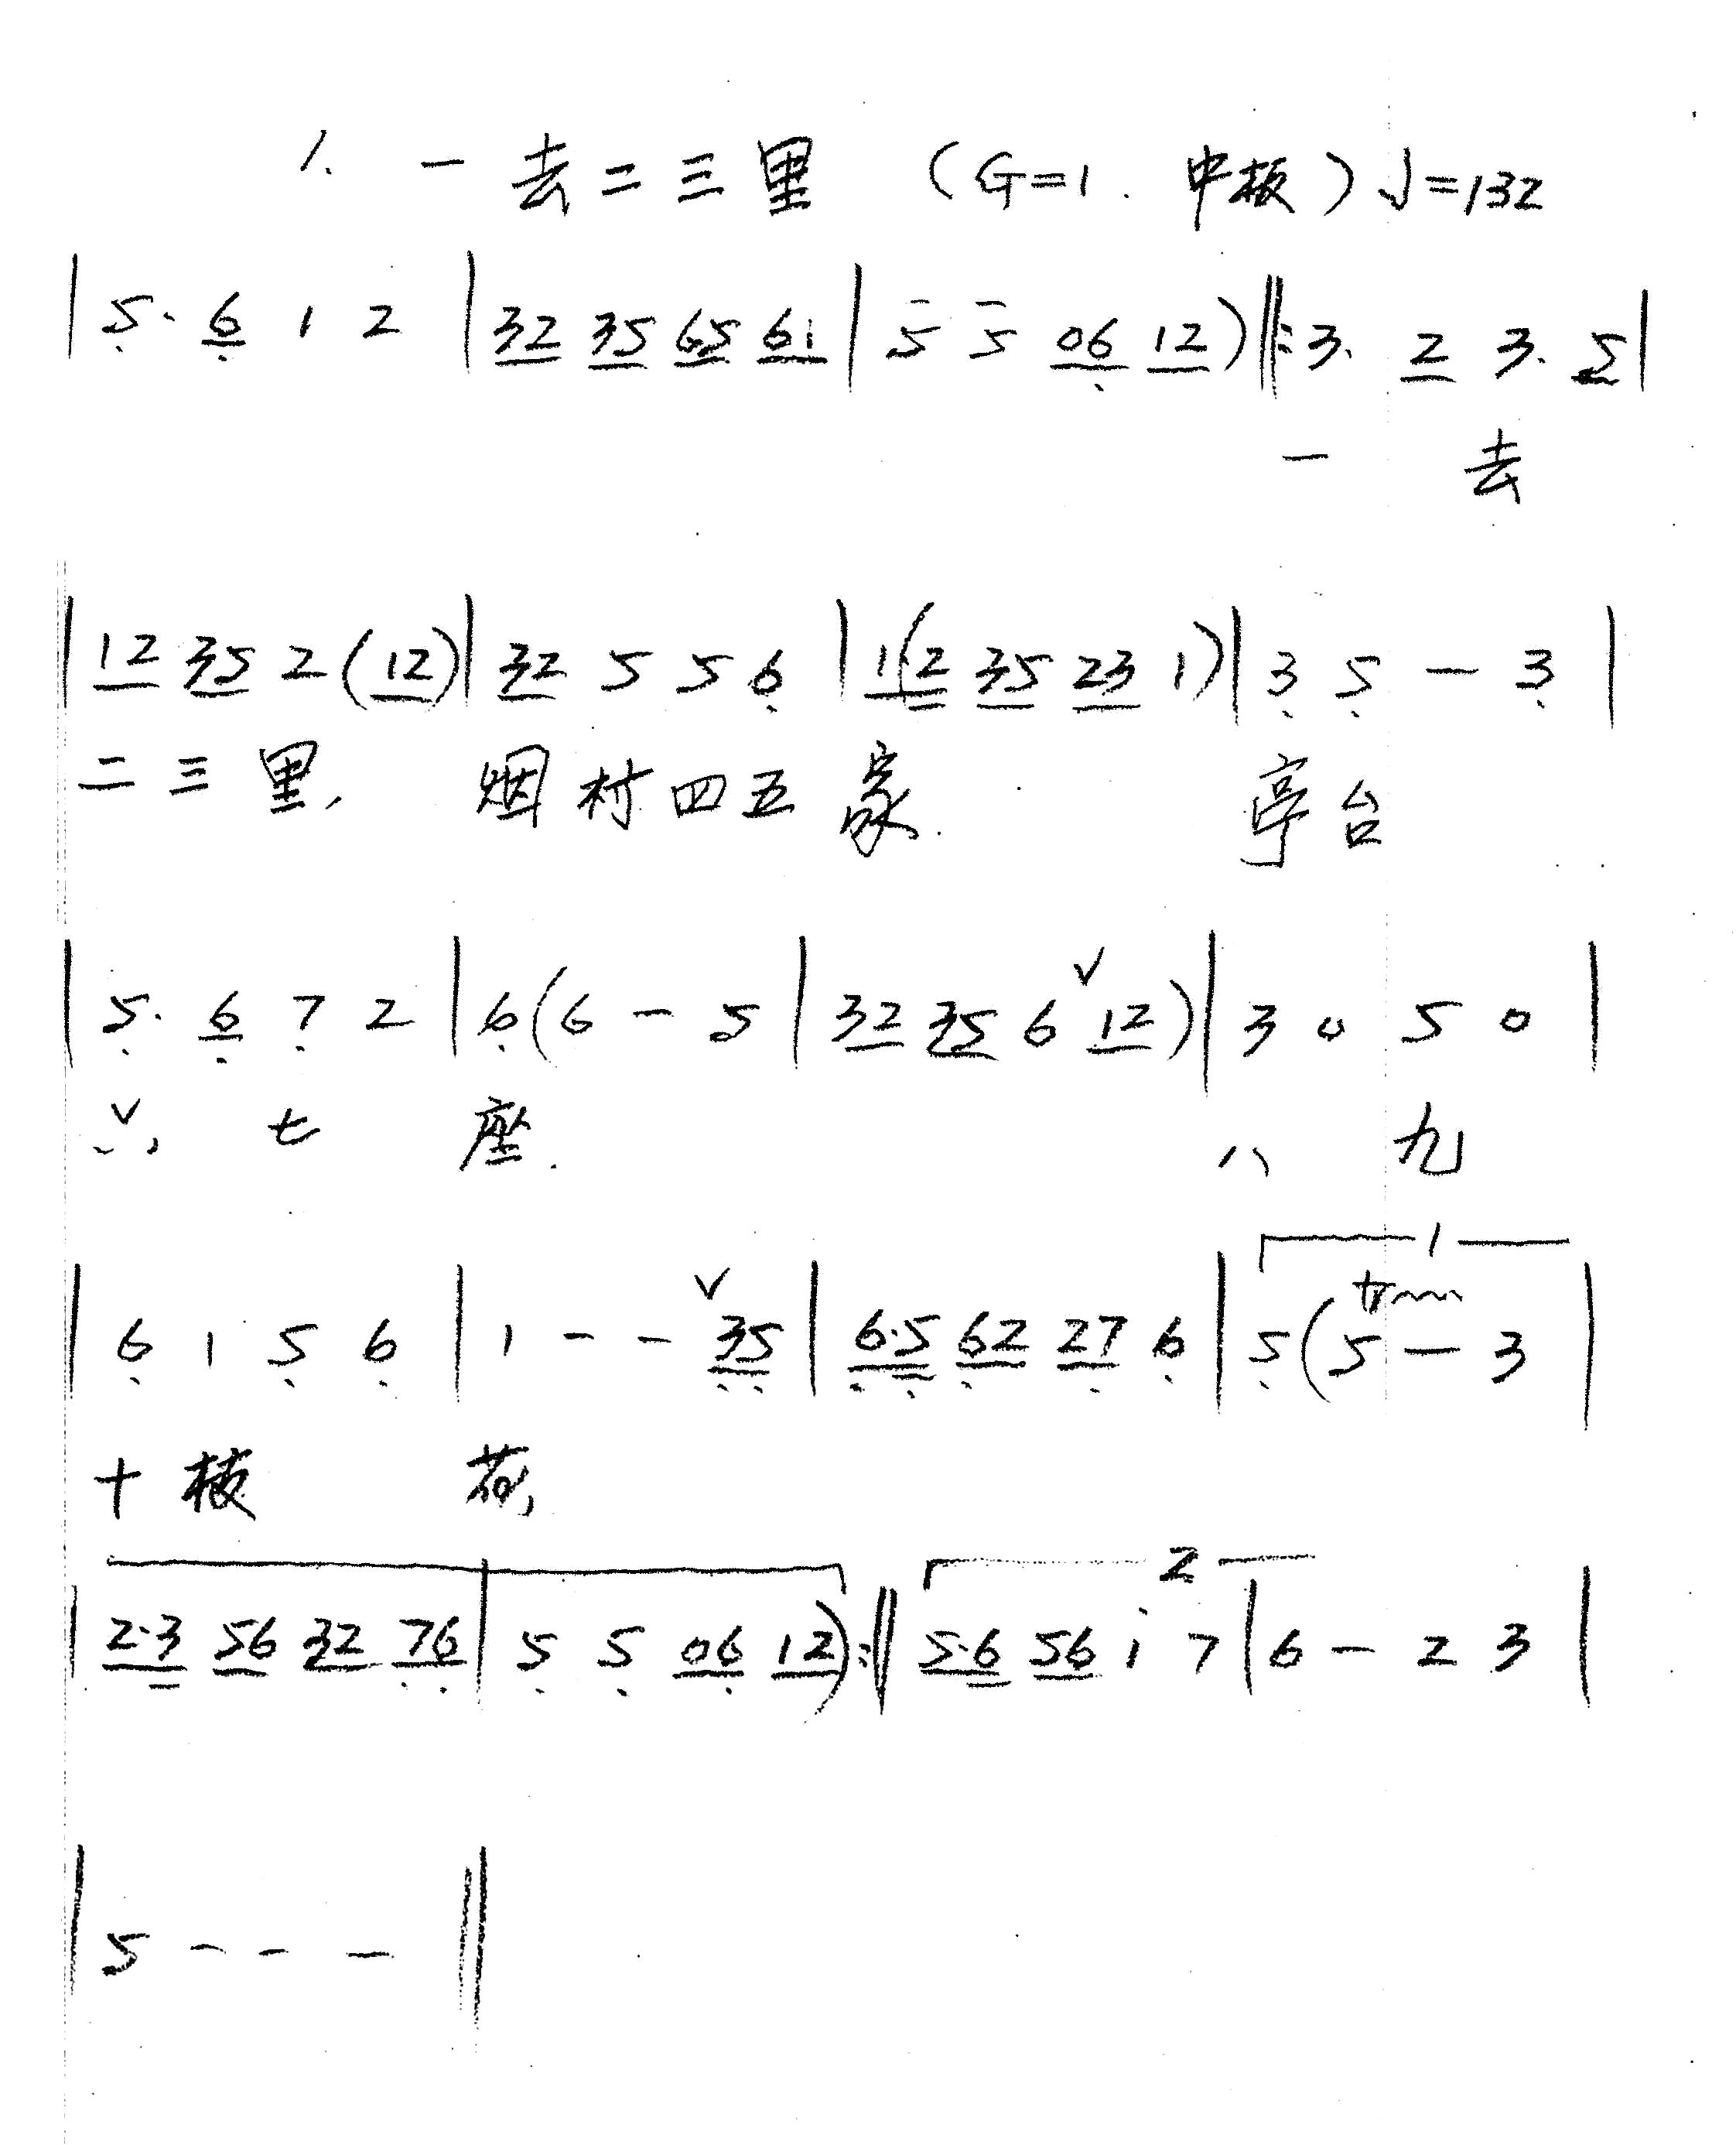 1. 一去二三里 (G=1. 中板) ♩=132
| 5. 6 1 2 | 32 35 65 61 | 5 5 06 12) ‖: 3. 2 3. 5 |
一 去
| 12 35 2 (12) | 32 5 5 6 | 1·(2 35 23 1) | 3 5 - 3 |
二三里, 烟村四五家. 亭台
| 5. 6 7 2 | 6 (6 - 5 | 32 35 6 ∨ 12) | 3 0 5 0 |
六, 七 座. 八 九
1
tr
| 6 1 5 6 | 1 - - ∨ 35 | 6·5 62 27 6 | 5 (5 - 3 |
十枝 花,
2
| 2·3 56 32 76 | 5 5 06 12) :‖ 5·6 56 1 7 | 6 - 2 3 |
| 5 - - - ‖